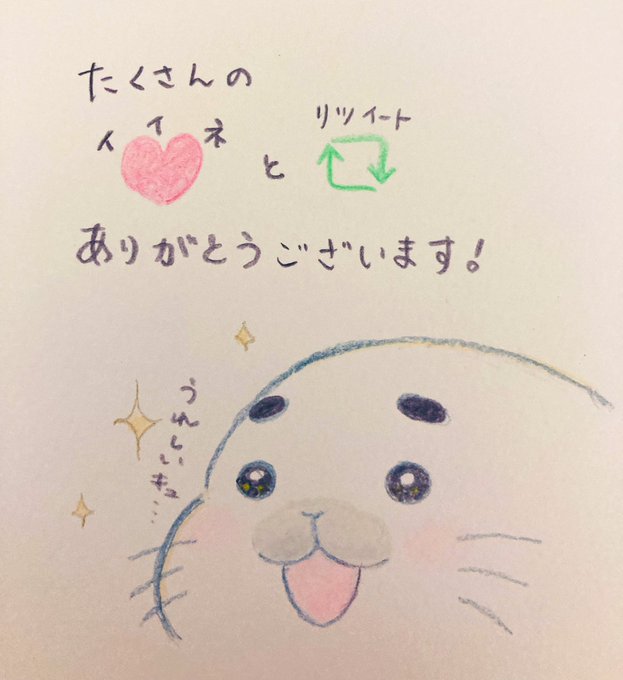 たくさんの
イイネ
と
リツイート
ありがとうございます!
うれしいキュ…